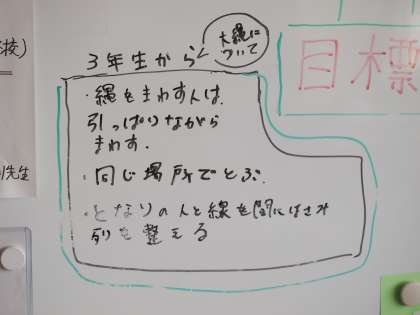 校)
3年生から
大縄に
ついて
目標
・縄をまわす人は、
引っぱりながら
まわす。
・同じ場所でとぶ.
・となりの人と線を間にはさみ
列を整える
先生